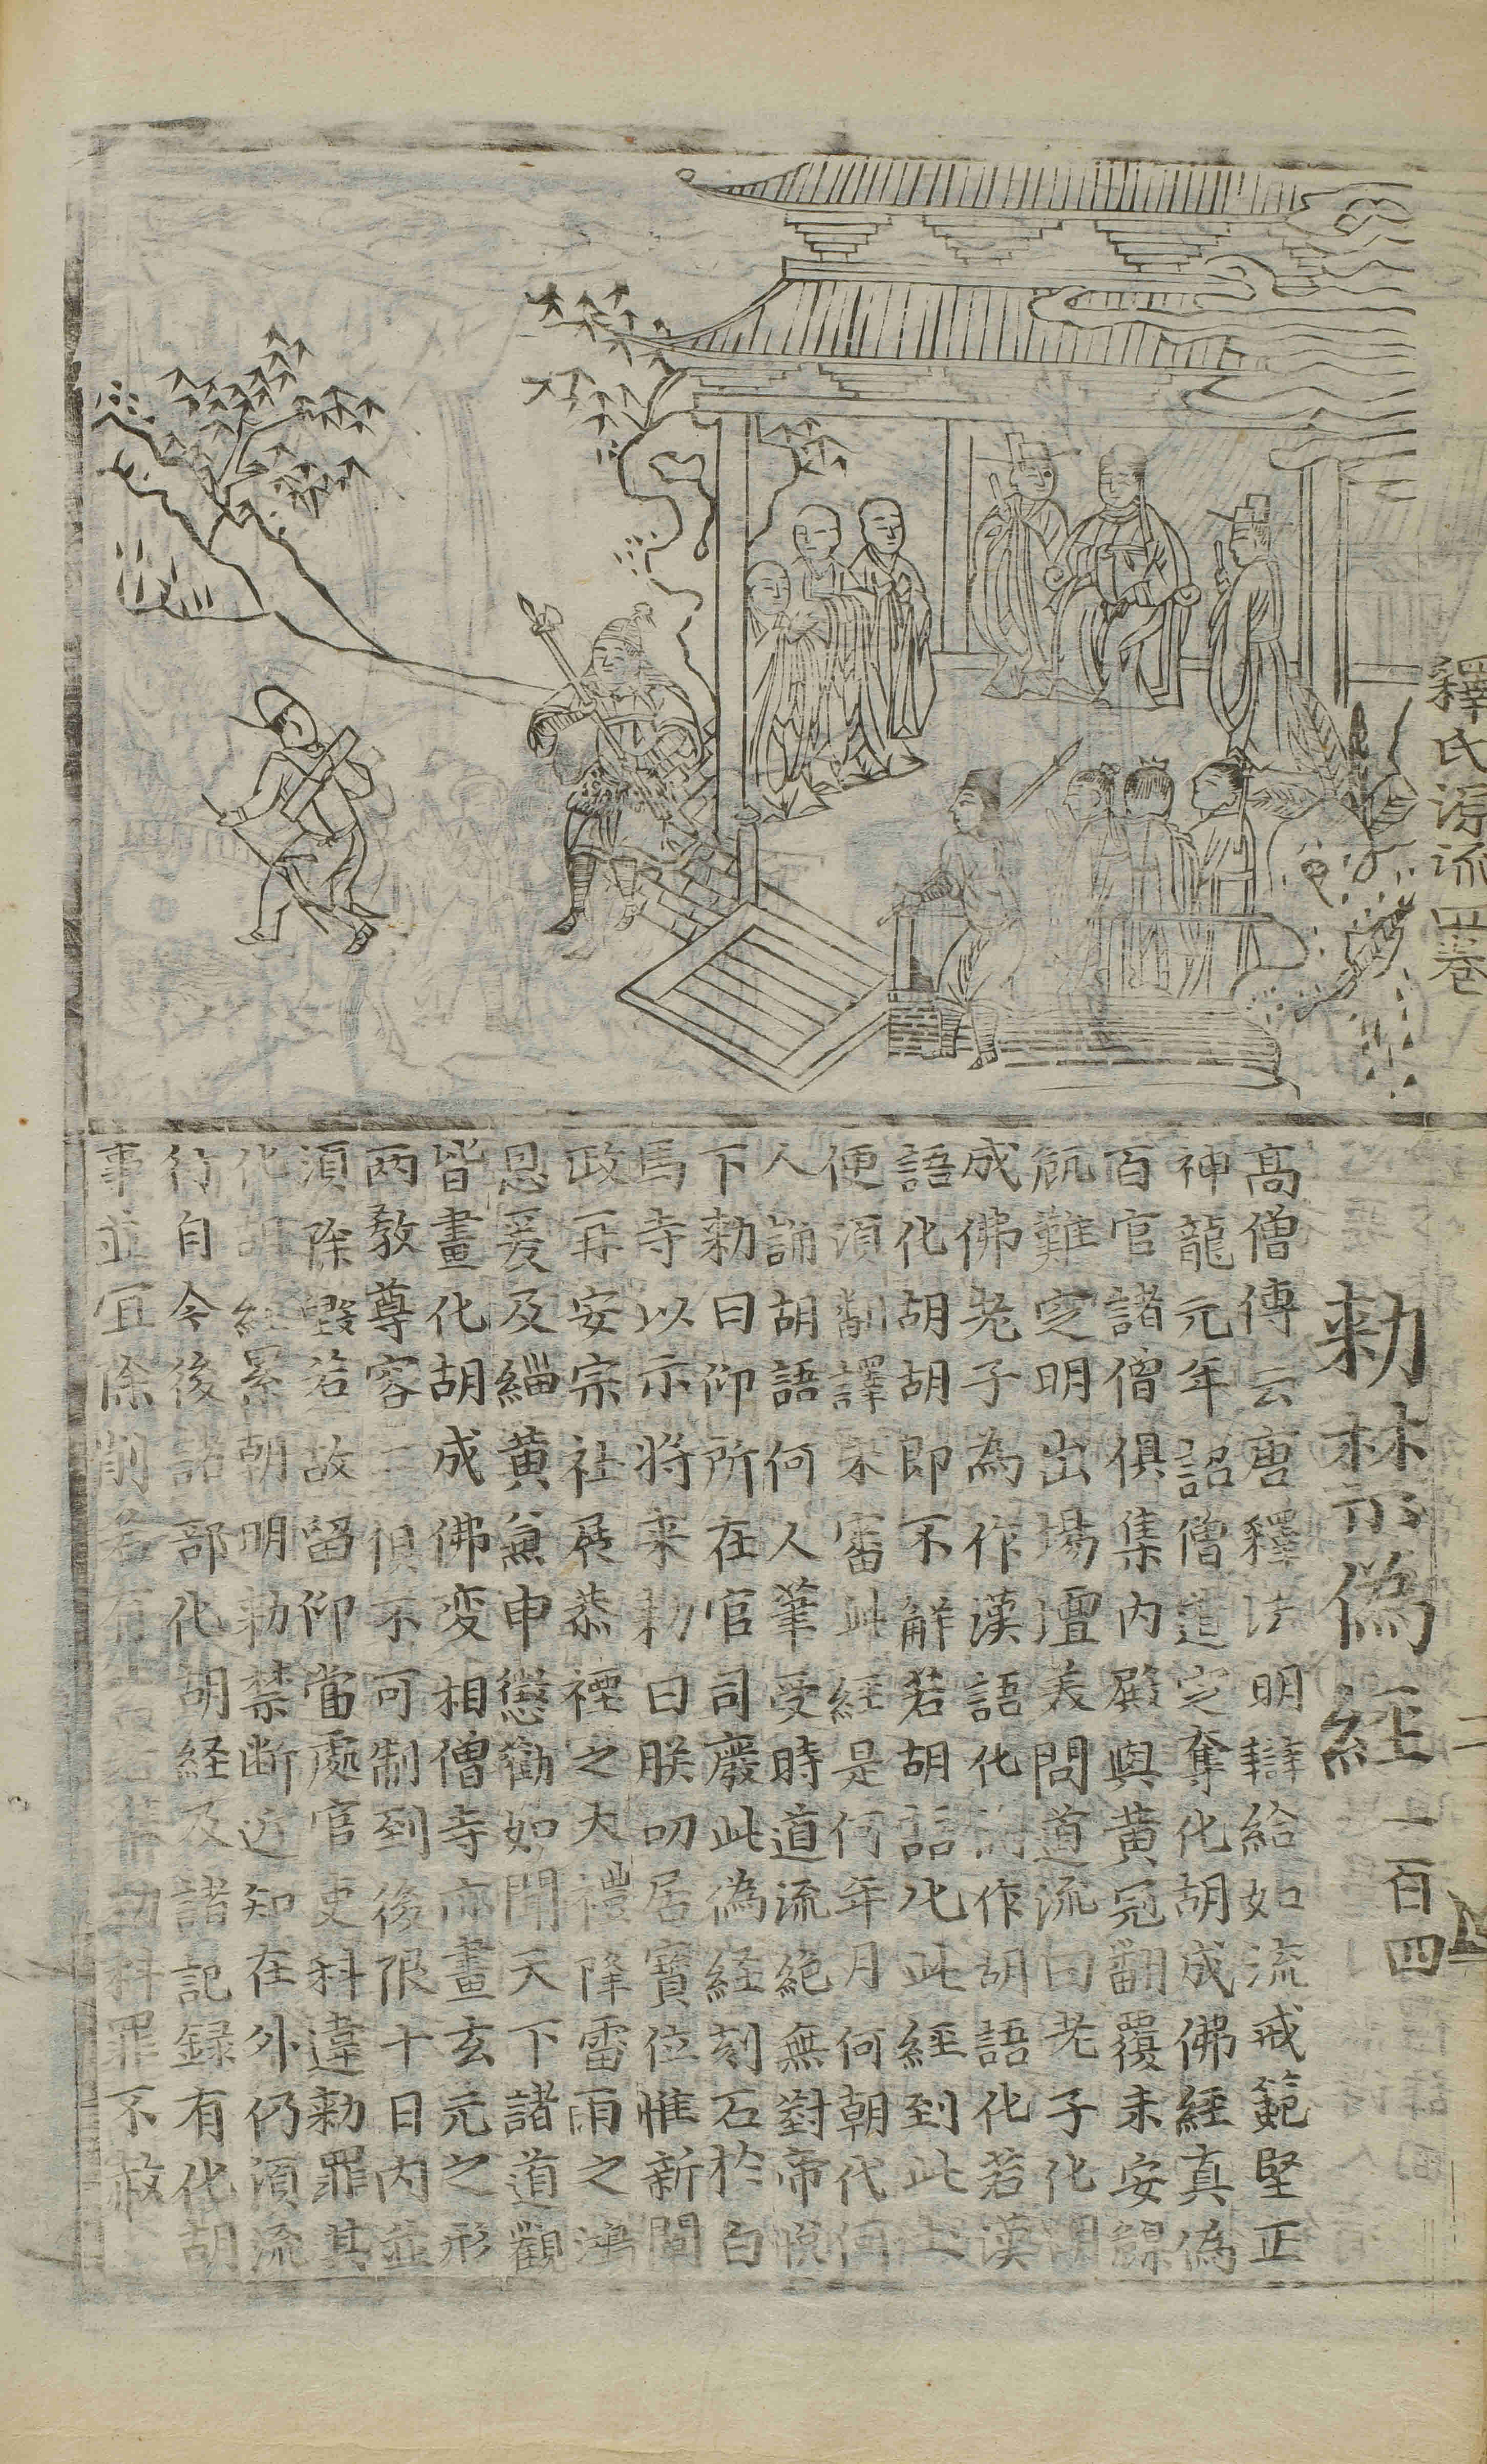 釋氏源流四卷
勑禁偽經
一百四
高僧傳云唐釋法明辯給如流戒範堅正
神龍元年詔僧道定奪化胡成佛經真偽
百官諸僧俱集內殿與黃冠翻覆未安
難定明出場壇義問道流曰老子化胡
成佛老子為作漢語化為作胡語化若漢
語化胡胡即不解若胡語化此經到此土
便須翻譯未審此經是何年月何朝代何
人誦胡語何人筆受時道流絕無對帝悅
下勑曰仰所在官司廢此偽経刻石於白
馬寺以示將来勑曰朕叨居寳位惟新闡
政再安宗社展恭禋之大禮降雷雨之鴻
恩爰及緇黃兼申懲勸如聞天下諸道觀
皆畫化胡成佛変相僧寺亦畫玄元之形
兩教尊容二俱不可制到後限十日內並
須除毀若故留仰當處官吏科違勑罪其
化胡經累朝明勑禁斷近知在外仍須流
行自今後諸部化胡経及諸記録有化胡
事並宜除削若有 科罪不赦